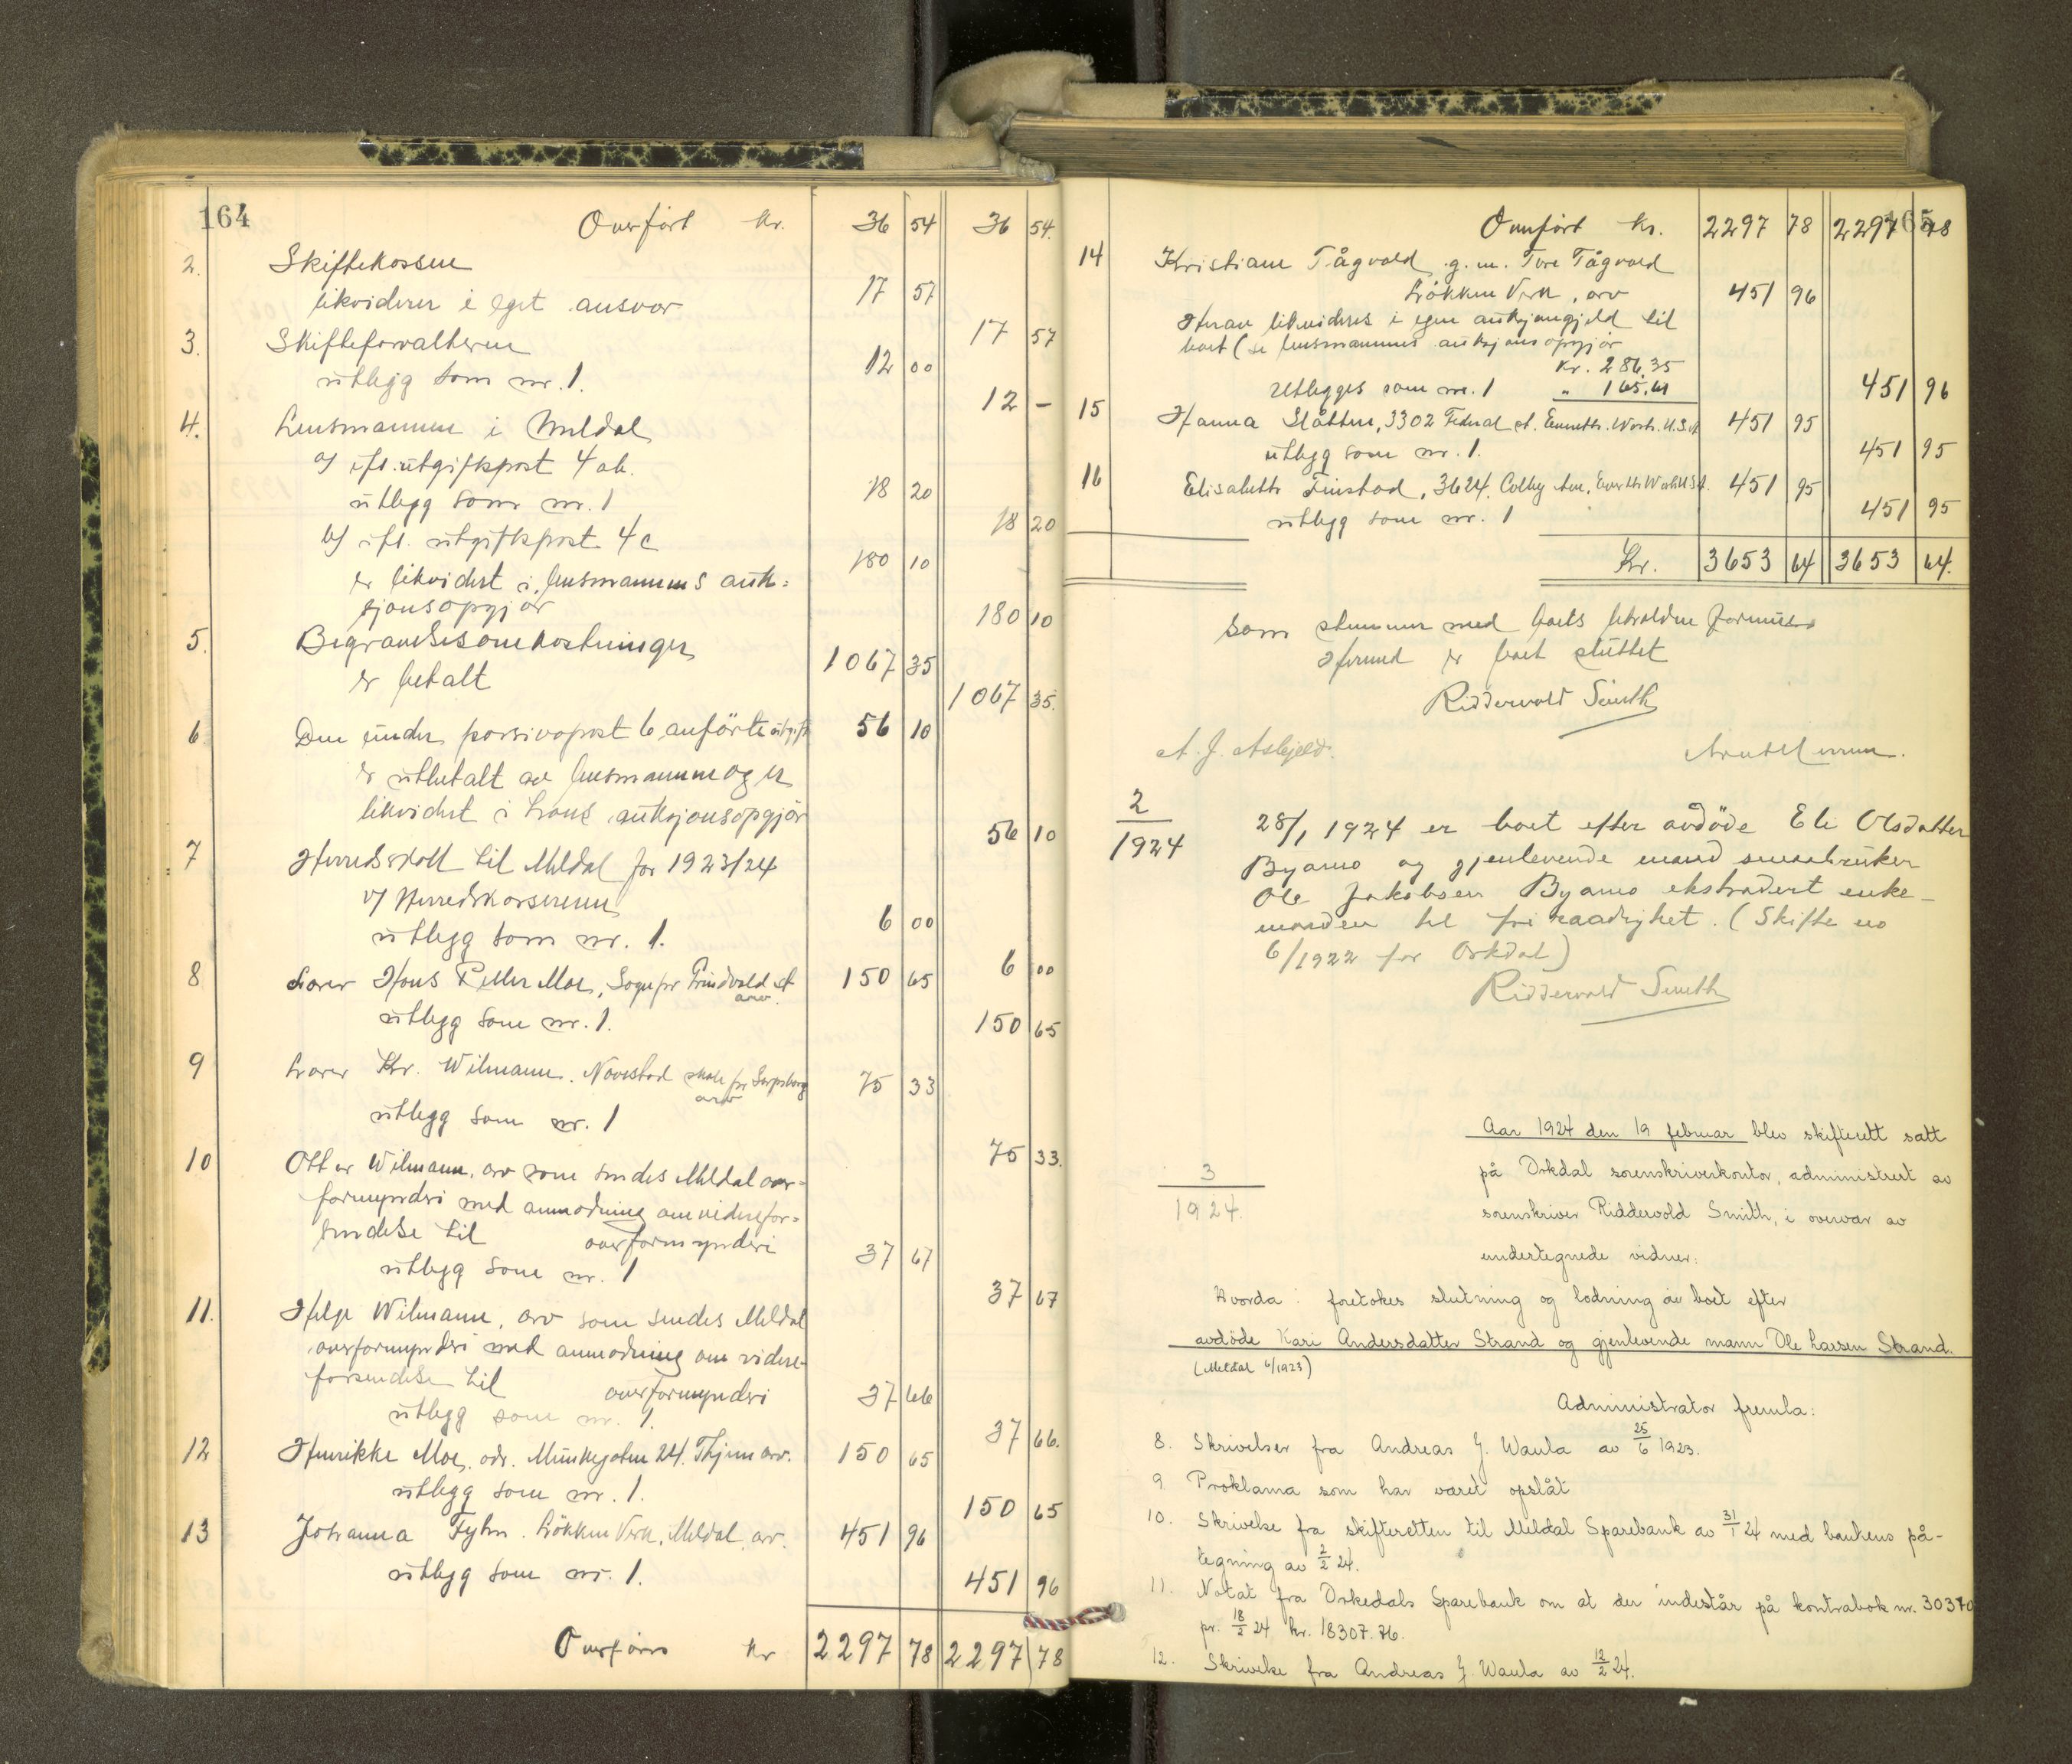 164
Overført kr. 36 54 36 54.
2. Skiftekassen
likviderer i eget ansvar 17 57
17 57
3. Skifteforvalteren
utlegg som nr. 1. 12 00
12 –
4. Lensmannen i Meldal
a) ifl. utgiftspost 4 ab.
utlegg som nr. 1 18 20
18 20
b) ifl. utgiftspost 4 c 180 10
er likvidert i lensmannens auk-
sjonsopgjør 180 10
5. Begravelsesomkostninger 1067 35
er betalt
1067 35.
6 Den under passivapost 6 anførte utgift 56 10
er utbetalt av lensmannen og er
likvidert i hans auksjonsopgjør
56 10
7 Herredsskatt til Meldal for 1923/24
v/ Herredskassereren
6 00
utlegg som nr. 1.
6 00
8 Lærer Hans Petter Moe, Sogn pr. arv. 150 65
utlegg som nr. 1. 150 65
9 Lærer Chr. Wilmann. Navestad skole pr Sarpsborg arv 75 33
utlegg som nr. 1
75 33.
10 Otter Wilmann, arv som sendes Meldal over-
formynderi med anmodning om viderefor-
sendelse til overformynderi 37 67
utlegg som nr. 1
37 67
11. Helge Wilmann, arv som sendes Meldal
overformynderi med anmodning om videre-
forsendelse til overformynderi 37 66
utlegg som nr. 1.
37 66.
12 Henrikke Moe, adr. Munkegaten 24. Thjem arv. 150 65
utlegg som nr. 1.
150 65
13 Johanna Løkken Verk, Meldal, arv. 451 96
utlegg som nr. 1. 451 96
Overføres kr 2297 78 2297 78
165
Overført kr. 2297 78 2297 78
14 Kristiane Tågvold g.m. Tore Tågvold
Løkken Verk, arv 451 96
Herav likvideres i egen auksjonsgjeld til
boet (se lensmannens auksjonsopgjør
kr. 286,35
Utlegges som nr. 1 " 165,61 451 96
15 Hanna Slåtten, 3302 Federal st. Everett. Wash. U.S.A 451 95
utlegg som nr. 1. 451 95
16 Elisabeth Finstad, 3624, Colby Ave, Everett Wash U.S.A. 451 95
utlegg som nr. 1 451 95
Kr. 3653 64 3653 64.
som stemmer med boets beholdne formue
Hermed er boet sluttet
Riddervold Smith
A. J. Asbjeld.
2/1924
28/1 1924 er boet efter avdøde Eli Olsdatter
Byamo og gjenlevende mand smaabruker
Ole Jakobsen Byamo ekstradert enke-
manden til fri raadighet. (Skifte no
6/1922 for Orkdal)
Riddervold Smith
Aar 1924 den 19 februar blev skifterett satt
3/1924.
på Orkdal sorenskriverkontor, administrert av
sorenskriver Riddervold Smith, i overvær av
undertegnede vidner:
Hvorda: foretokes slutning og lodning av boet efter
avdøde Kari Andersdatter Strand og gjenlevende mann Ole Larsen Strand.
(Meldal 6/1923)
Administrator fremla:
8. Skrivelser fra Andreas J. Waula av 25/6 1923.
9 Proklama som har været opslåt
10. Skrivelse fra skifteretten til Meldal Sparebank av 31/1 24 med bankens på-
tegning av 2/2 24.
11. Notat fra Orkedals Sparebank om at der indestår på kontrabok nr. 30370
pr. 18/2 24 kr. 18307.76.
12. Skrivelse fra Andreas J. Waula av 12/2 24.